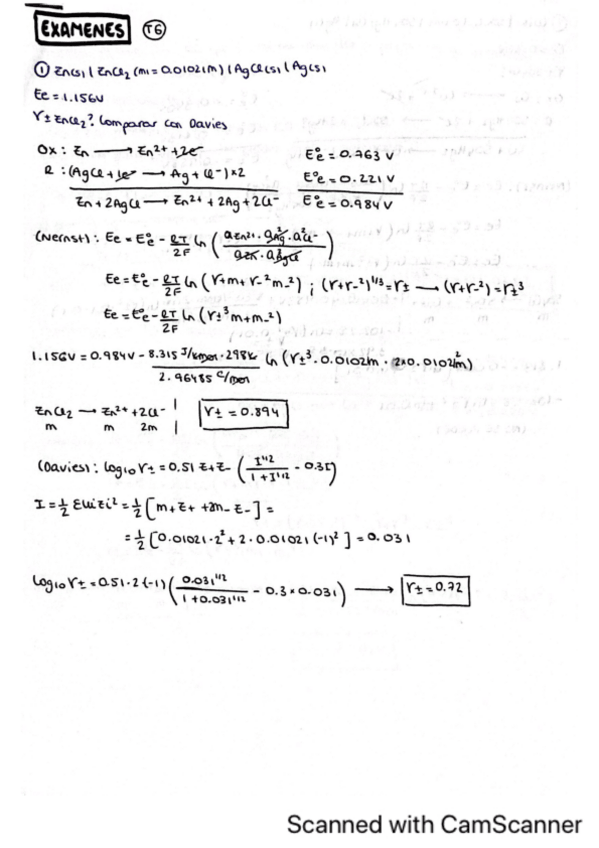 EXAMENES T6
① Zn(s) | ZnCl₂ (m = 0.01021m) | AgCl(s) | Ag(s)
Ee = 1.156V
γ± ZnCl₂? Comparar con Davies
Ox: Zn → Zn²⁺ + 2e⁻ E°e = 0.763 V
R: (AgCl + 1e⁻ → Ag + Cl⁻)×2 E°e = 0.221 V
Zn + 2AgCl → Zn²⁺ + 2Ag + 2Cl⁻ E°e = 0.984 V
(Nernst): Ee = E°e - RT/2F ln (aZn²⁺ · a²Ag · a²Cl⁻ / aZn · a²AgCl)
Ee = E°e - RT/2F ln (γ+m+γ-²m-²) ; (γ+γ-²)^1/3 = γ± → (γ+γ-²) = γ±³
Ee = E°e - RT/2F ln (γ±³m+m-²)
1.156V = 0.984V - 8.315 J/kmol · 298k / 2.96485 C/mol ln (γ±³ · 0.01021m · 2×0.01021²m)
ZnCl₂ → Zn²⁺ + 2Cl⁻ | γ± = 0.894
m m 2m |
(Davies): log₁₀ γ± = 0.51 Z+Z- (I^1/2 / 1 + I^1/2 - 0.3I)
I = 1/2 Σmizi² = 1/2 [m+Z+ + 2m-Z-] =
= 1/2 [0.01021·2² + 2·0.01021(-1)²] = 0.031
log₁₀ γ± = 0.51·2(-1) (0.031^1/2 / 1 + 0.031^1/2 - 0.3×0.031) → γ± = 0.72
Scanned with CamScanner